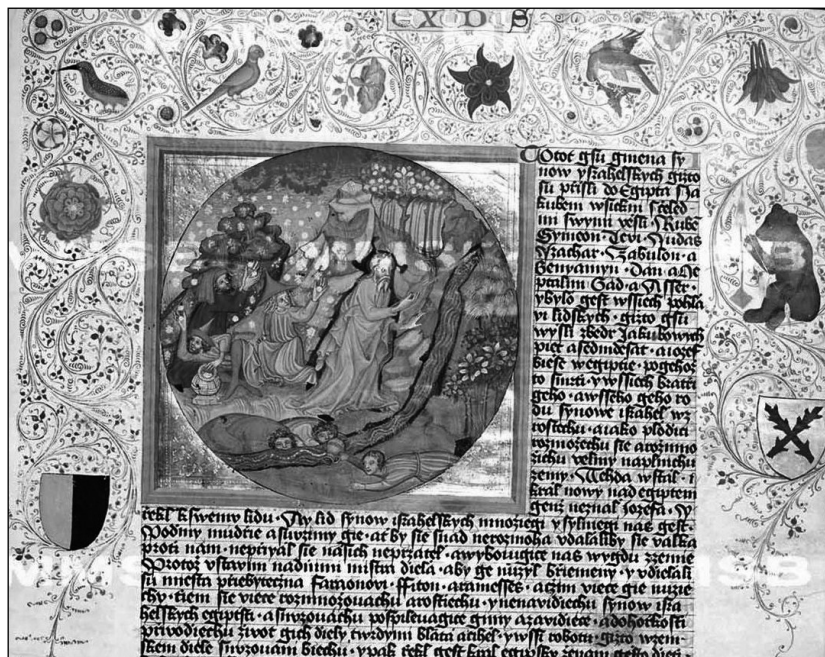 EXODUS
Totot gsu gmena sy
now yzrahelskych gizto
su prisli do Egipta s Ja
kubem wsickni s czeled
mi swymi vesli Rube
Symeon Levi Judas
Yzachar Zabulon a
Benyamyn Dan a Ne
ptalim Gad a Asser
ybylo gest wssiech pohla
vi lidskych gizto gsu
wysli zbedr Jakubowych
piet a sedmdesat a iozef
biese wegiptie pogehoz
to smrti y wssiech bratri
geho a wsseho geho ro
du synowe israhel wz
rostechu a iako plodici
rozmozechu sie a rozmno
zichu velmi naplnichu
zemy Tehda wstal i
kral nowy nad egiptem
genz neznal Jozefa y
rekl k swemu lidu Ay lid synow israhelskych mnoziegi y sylniegi nas gest
Podmy mudrie a suzimy gie at by sie snad nerozmohl a vdalaliby sie valka
proti nam nepriyal sie nasich neprzatel a wyboiugice nas wygdu z zemie
Protoz vstavim nad nimi mistri diela aby ge muzyl briemeny y vdielali
su miesta pribyteczna Faraonovi Fiton a ramesses a czim viece gie muzie
chy tiem sie viece rozmnozovachu a rostiechu y nenavidiechu synow isra
helskych egiptsti a suzovachu pospilevagice gimy a zavidiece a dohorzkosti
privodiechu zivot gich diely twrdymi blata a cihel y wsi robotu gizto wzem
skem diele suzovani biechu y pak rekl gest kral egipsky zenam